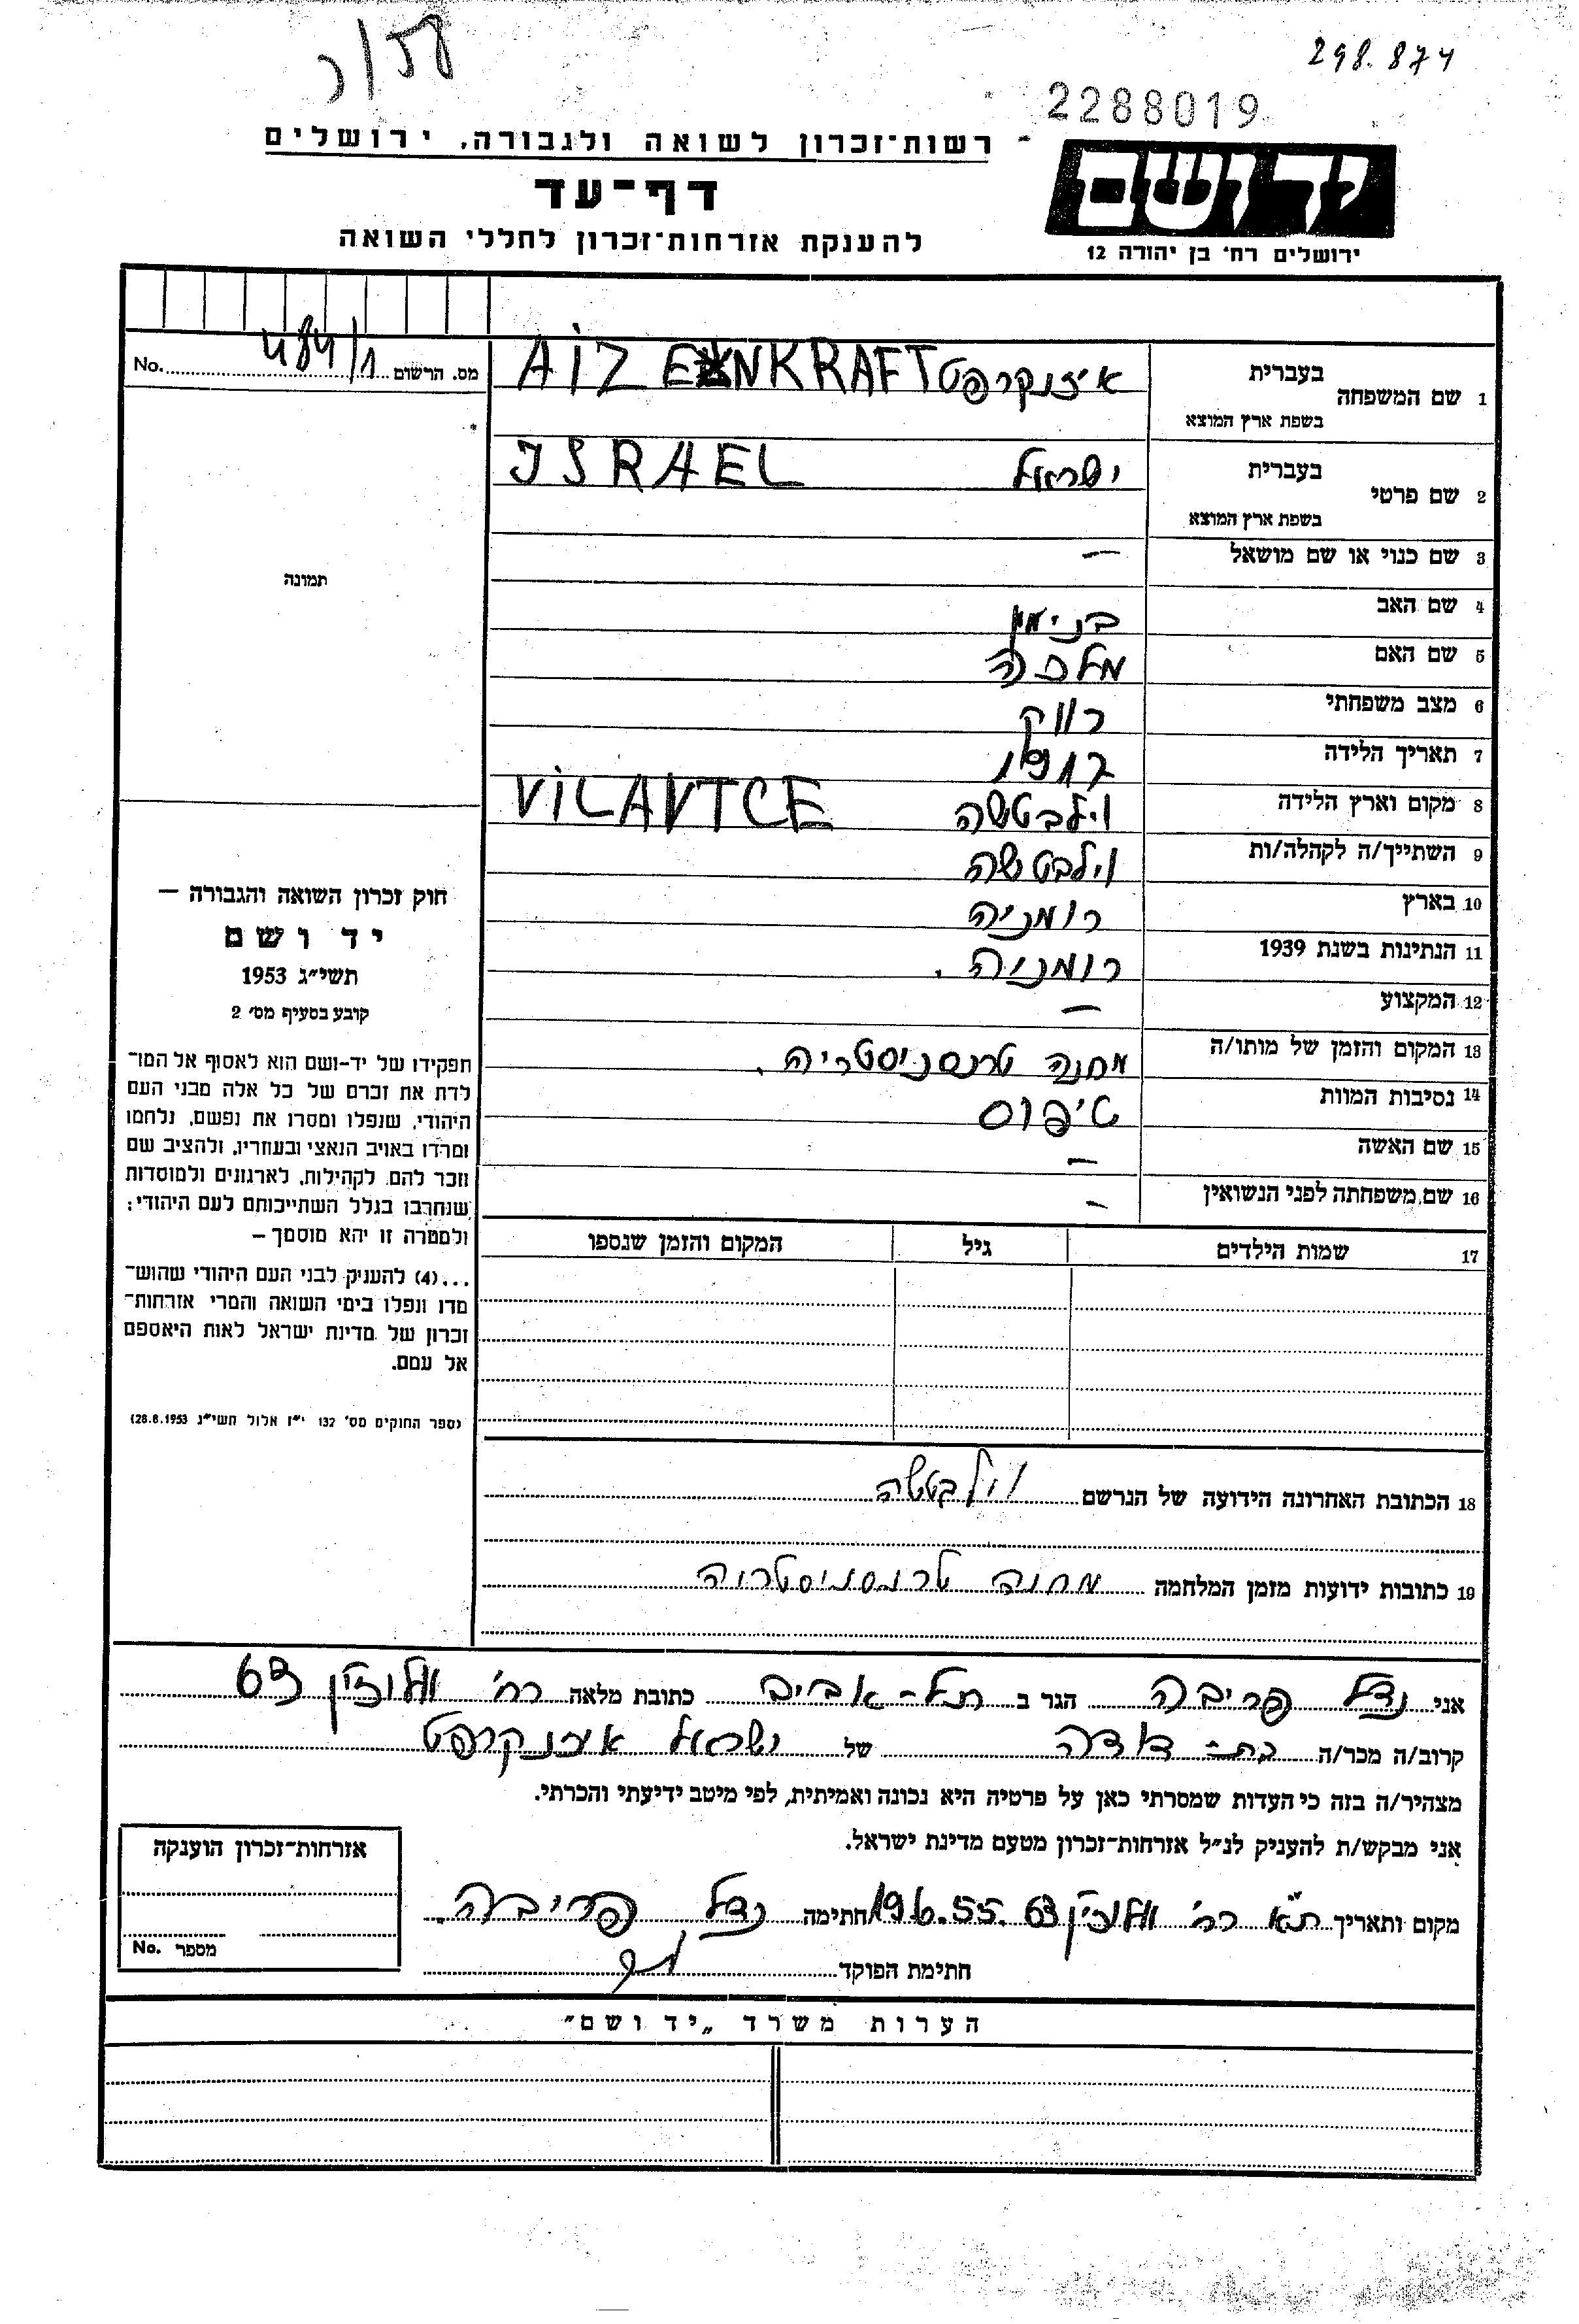 298.874
2288019
רשות־זכרון לשואה ולגבורה, ירושלים
יד ושם
דף־עד
להענקת אזרחות־זכרון לחללי השואה
ירושלים רח' בן יהודה 12
מס. הרשום 484/1 No.
1 שם המשפחה בעברית איזנקרפט AIZENKRAFT
בשפת ארץ המוצא
2 שם פרטי בעברית ישראל ISRAEL
בשפת ארץ המוצא
3 שם כנוי או שם מושאל —
תמונה
4 שם האב בנימין
5 שם האם מלכה
6 מצב משפחתי רווק
7 תאריך הלידה
8 מקום וארץ הלידה וילבטשה VILAVTCE
9 השתייך/ה לקהלה/ות וילבטשה
10 בארץ רומניה
11 הנתינות בשנת 1939 רומניה.
12 המקצוע —
13 המקום והזמן של מותו/ה מחנה טרנסניסטריה.
14 נסיבות המוות טיפוס
15 שם האשה —
16 שם משפחתה לפני הנשואין —
17 שמות הילדים גיל המקום והזמן שנספו
חוק זכרון השואה והגבורה —
יד ושם
תשי״ג 1953
קובע בסעיף מס׳ 2
תפקידו של יד-ושם הוא לאסוף אל המו־
לדת את זכרם של כל אלה מבני העם
היהודי, שנפלו ומסרו את נפשם, נלחמו
ומרדו באויב הנאצי ובעוזריו, ולהציב שם
וזכר להם, לקהילות, לארגונים ולמוסדות
שנחרבו בגלל השתייכותם לעם היהודי;
ולמטרה זו יהא מוסמך —
...(4) להעניק לבני העם היהודי שהוש־
מדו ונפלו בימי השואה והמרי אזרחות־
זכרון של מדינת ישראל לאות היאספם
אל עמם.
(ספר החוקים מס׳ 132 י״ז אלול תשי״ג 28.8.1953)
18 הכתובת האחרונה הידועה של הנרשם וילבטשה
19 כתובות ידועות מזמן המלחמה מחנה טרנסניסטריה
אני נדל פריבה הגר ב תל-אביב כתובת מלאה רח' וולוז'ין 63
קרוב/ה מכר/ה בת-דודה של ישראל איזנקרפט
מצהיר/ה בזה כי העדות שמסרתי כאן על פרטיה היא נכונה ואמיתית, לפי מיטב ידיעתי והכרתי.
אני מבקש/ת להעניק לנ״ל אזרחות־זכרון מטעם מדינת ישראל.
מקום ותאריך ת"א רח' וולוז'ין 63 19.6.55 חתימה נדל פריבה.
חתימת הפוקד
אזרחות־זכרון הוענקה
מספר No.
הערות משרד „יד ושם״